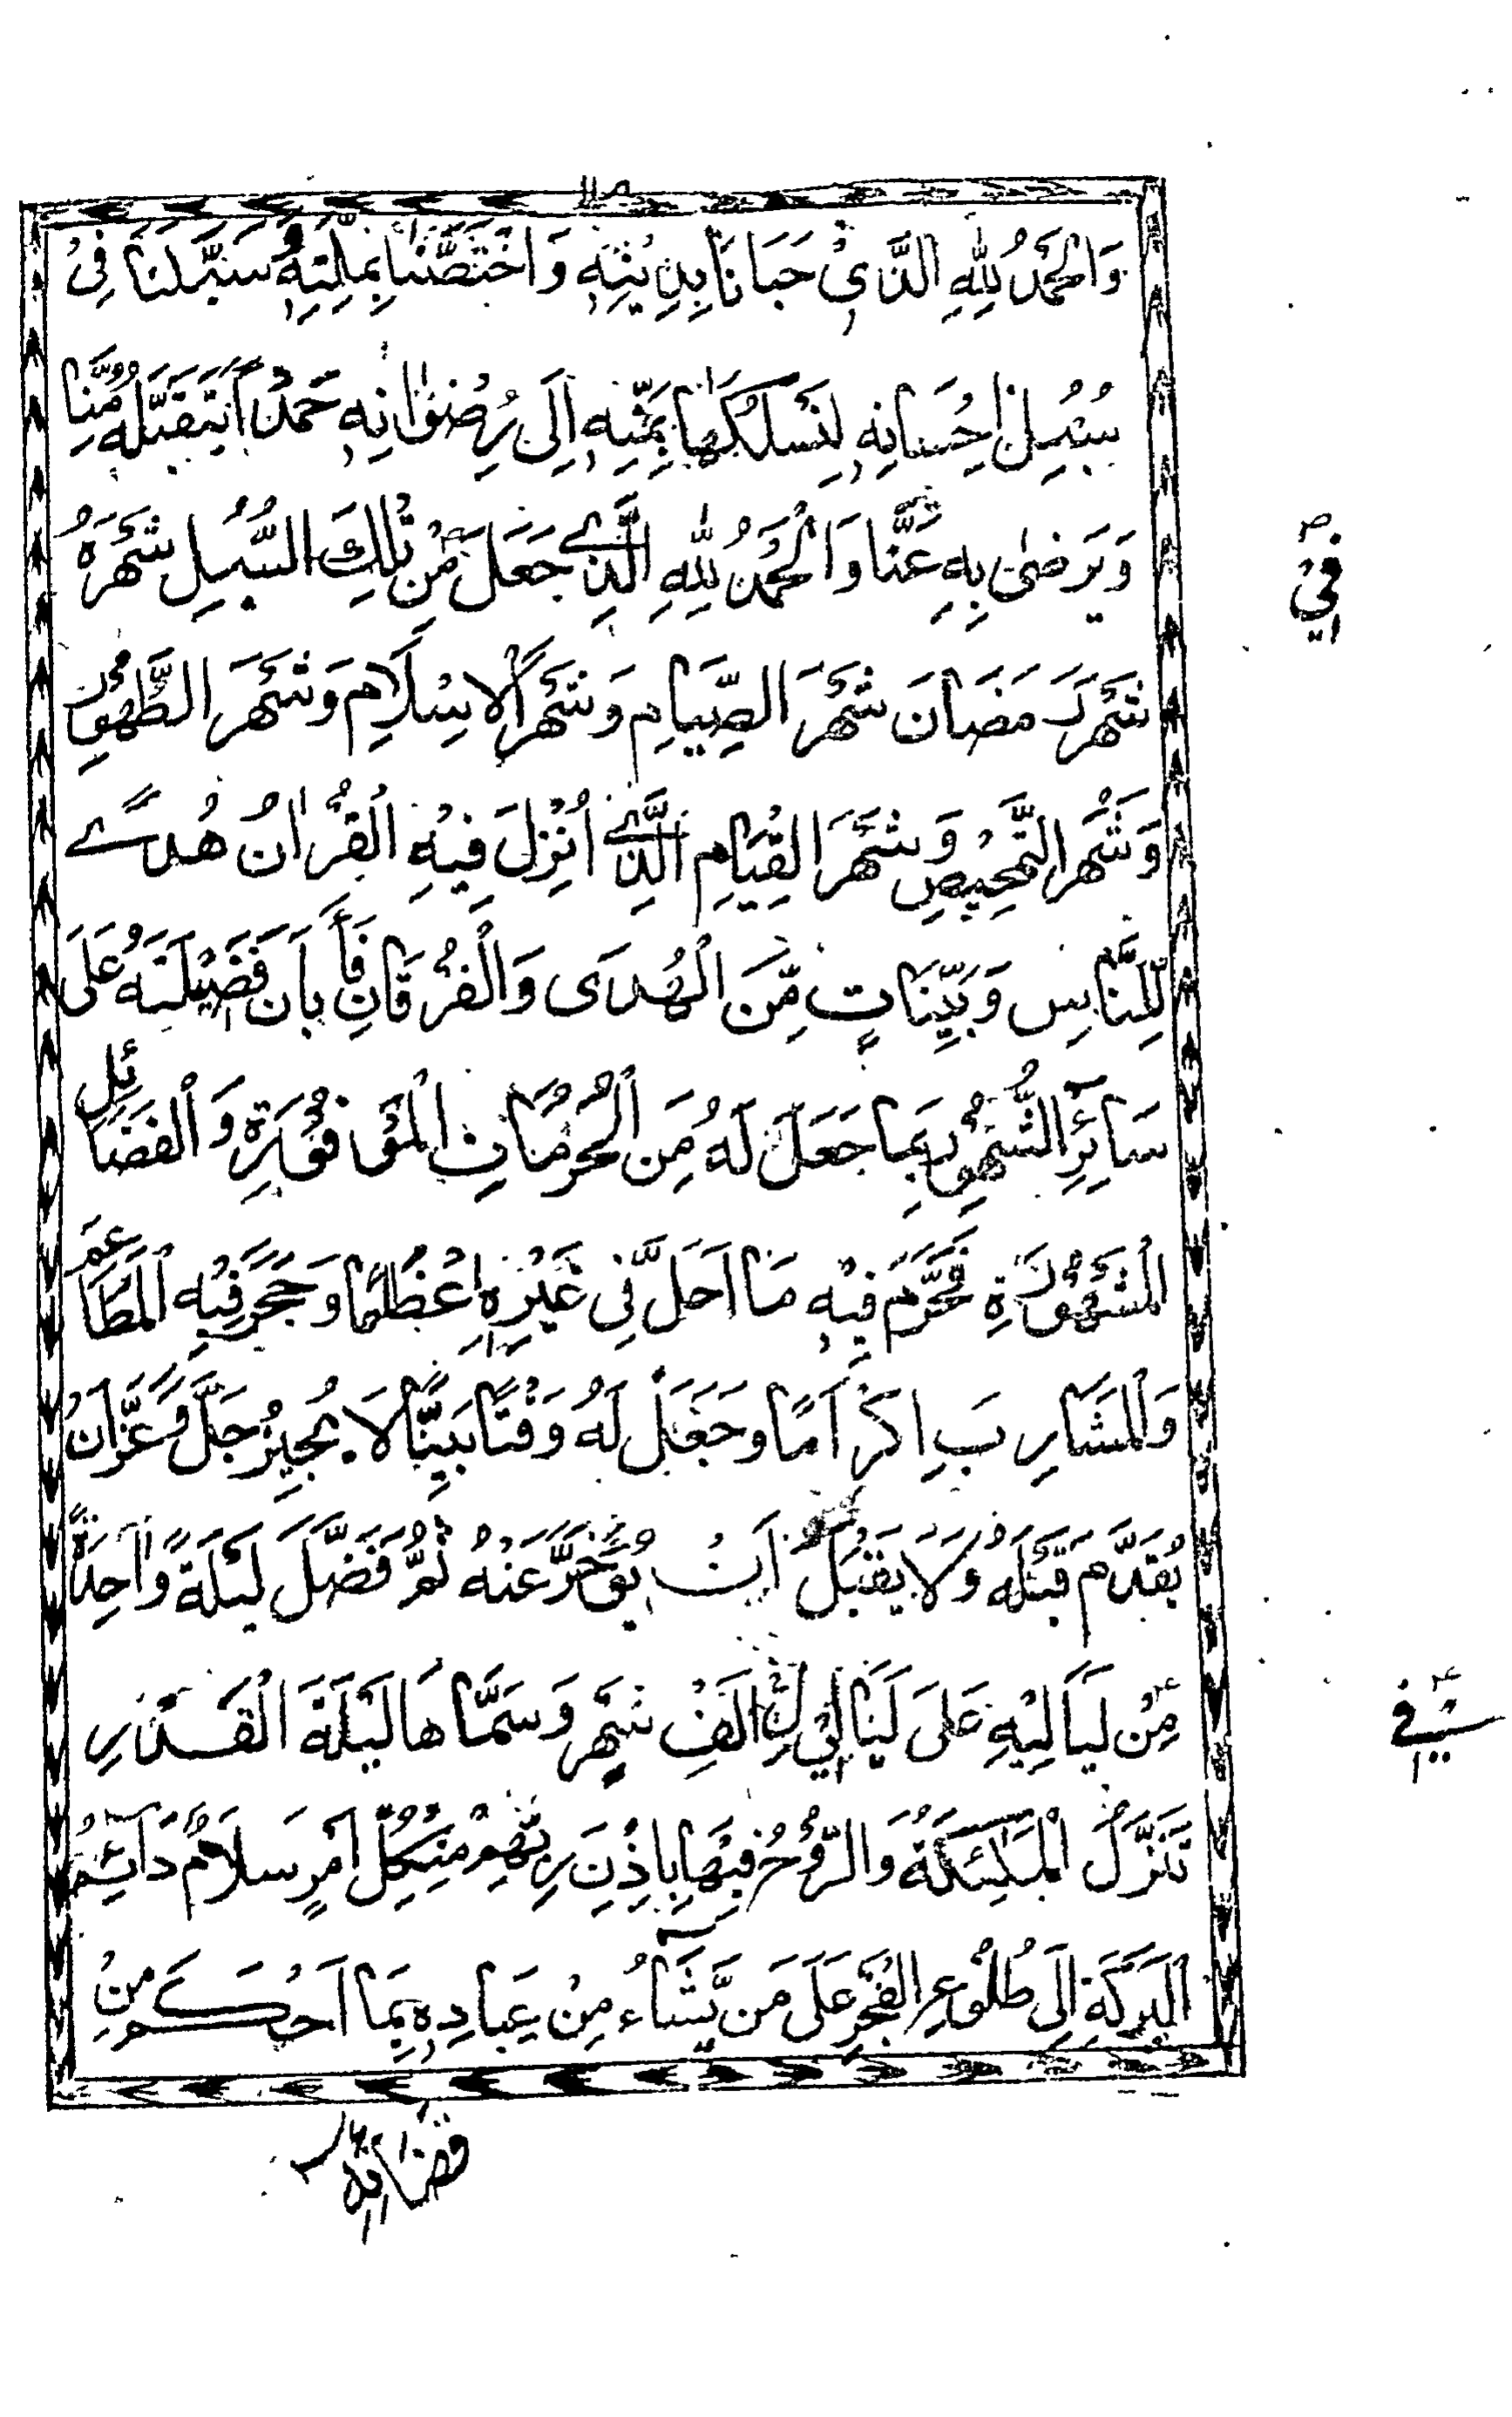 وَالْحَمْدُ لِلّٰهِ الَّذِیْ حَبَانَا بِدِیْنِهٖ وَاخْتَصَّنَا بِمِلَّتِهٖ وَسَبَّلَنَا فِیْ
سُبُلِ اِحْسَانِهٖ لِنَسْلُكَهَا بِمَنِّهٖ اِلَى رِضْوَانِهٖ حَمْدًا یَتَقَبَّلُهُ مِنَّا
وَیَرْضٰى بِهٖ عَنَّا وَالْحَمْدُ لِلّٰهِ الَّذِے جَعَلَ مِنْ تِلْكَ السُّبُلِ شَهْرَهُ
شَهْرَ رَمَضَانَ شَهْرَ الصِّیَامِ وَشَهْرَ الْاِسْلَامِ وَشَهْرَ الطَّهُوْرِ
وَشَهْرَ التَّمْحِیْصِ وَشَهْرَ الْقِیَامِ الَّذِے اُنْزِلَ فِیْهِ الْقُرْاٰنُ هُدًے
لِّلنَّاسِ وَبَیِّنَاتٍ مِّنَ الْهُدَى وَالْفُرْقَانِ فَأَبَانَ فَضِیْلَتَهُ عَلَى
سَائِرِ الشُّهُوْرِ بِمَا جَعَلَ لَهُ مِنَ الْحُرُمَاتِ الْمَوْفُوْرَةِ وَالْفَضَائِلِ
الْمَشْهُوْرَةِ فَحَرَّمَ فِیْهِ مَا اَحَلَّ فِی غَیْرِهٖ اِعْظَامًا وَحَجَرَ فِیْهِ الْمَطَاعِمَ
وَالْمَشَارِبَ اِكْرَامًا وَجَعَلَ لَهُ وَقْتًا بَیِّنًا لَا یُجِیْزُ جَلَّ وَعَزَّ اَنْ
یُقَدَّمَ قَبْلَهُ وَلَا یَقْبَلُ اَنْ یُؤَخَّرَ عَنْهُ ثُمَّ فَضَّلَ لَیْلَةً وَاحِدَةً
مِنْ لَیَالِیْهِ عَلَى لَیَالِیْ اَلْفِ شَهْرٍ وَسَمَّاهَا لَیْلَةَ الْقَدْرِ
تَنَزَّلُ الْمَلٰئِكَةُ وَالرُّوْحُ فِیْهَا بِاِذْنِ رَبِّهِمْ مِنْ كُلِّ اَمْرٍ سَلَامٌ دَآئِمُ
الْبَرَكَةِ اِلَى طُلُوْعِ الْفَجْرِ عَلَى مَنْ یَّشَآءُ مِنْ عِبَادِهٖ بِمَا اَحْكَمَ مِنْ
قَضَائِهٖ
فِیْ